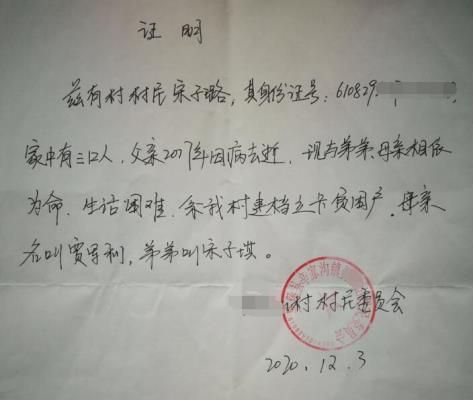 证明
兹有村村民宋子璐，其身份证号：610829
家中有三口人，父亲2017年因病去逝，现与弟弟、母亲相依
为命、生活困难、系我村建档立卡贫困户。母亲
名叫贾军利，弟弟叫宋子琪。
村村民委员会
2020.12.3